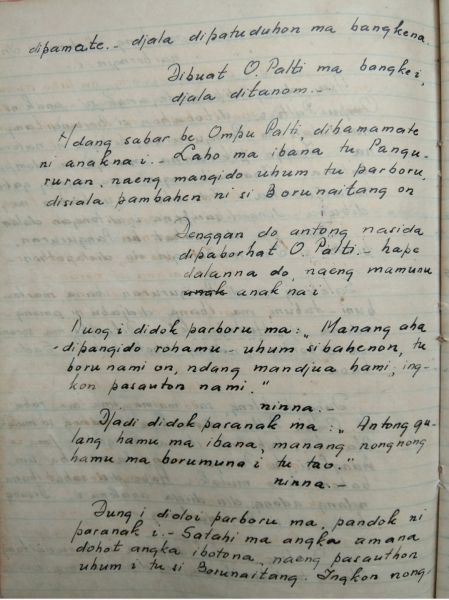 dipamate.- djala dipatuduhon ma bangkena.
Dibuat O. Palti ma bangke i,
djala ditanom.-
Ndang sabar be Ompu Palti, dibamamate
ni anakna i.- Laho ma ibana tu Pangu-
ruran, naeng mangido uhum tu parboru,
disiala pambahen ni si Borunaitang on
Denggan do antong nasida
dipaborhat O. Palti.- hape
dalanna do, naeng mamunu
anak anak na i
Dung i didok parboru ma: „Manang aha
dipangido rohamu - uhum sibahenon, tu
boru nami on, ndang mandjua hami, ing-
kon pasauton nami."
ninna.-
Djadi didok paranak ma: „Antong gu-
lang hamu ma ibana, manang nongnong
hamu ma borumuna i tu tao."
ninna.-
Dung i dioloi parboru ma, pandok ni
paranak i.- Satahi ma angka amana
dohot angka ibotona, naeng pasauthon
uhum i tu si Borunaitang. Ingkon nong-